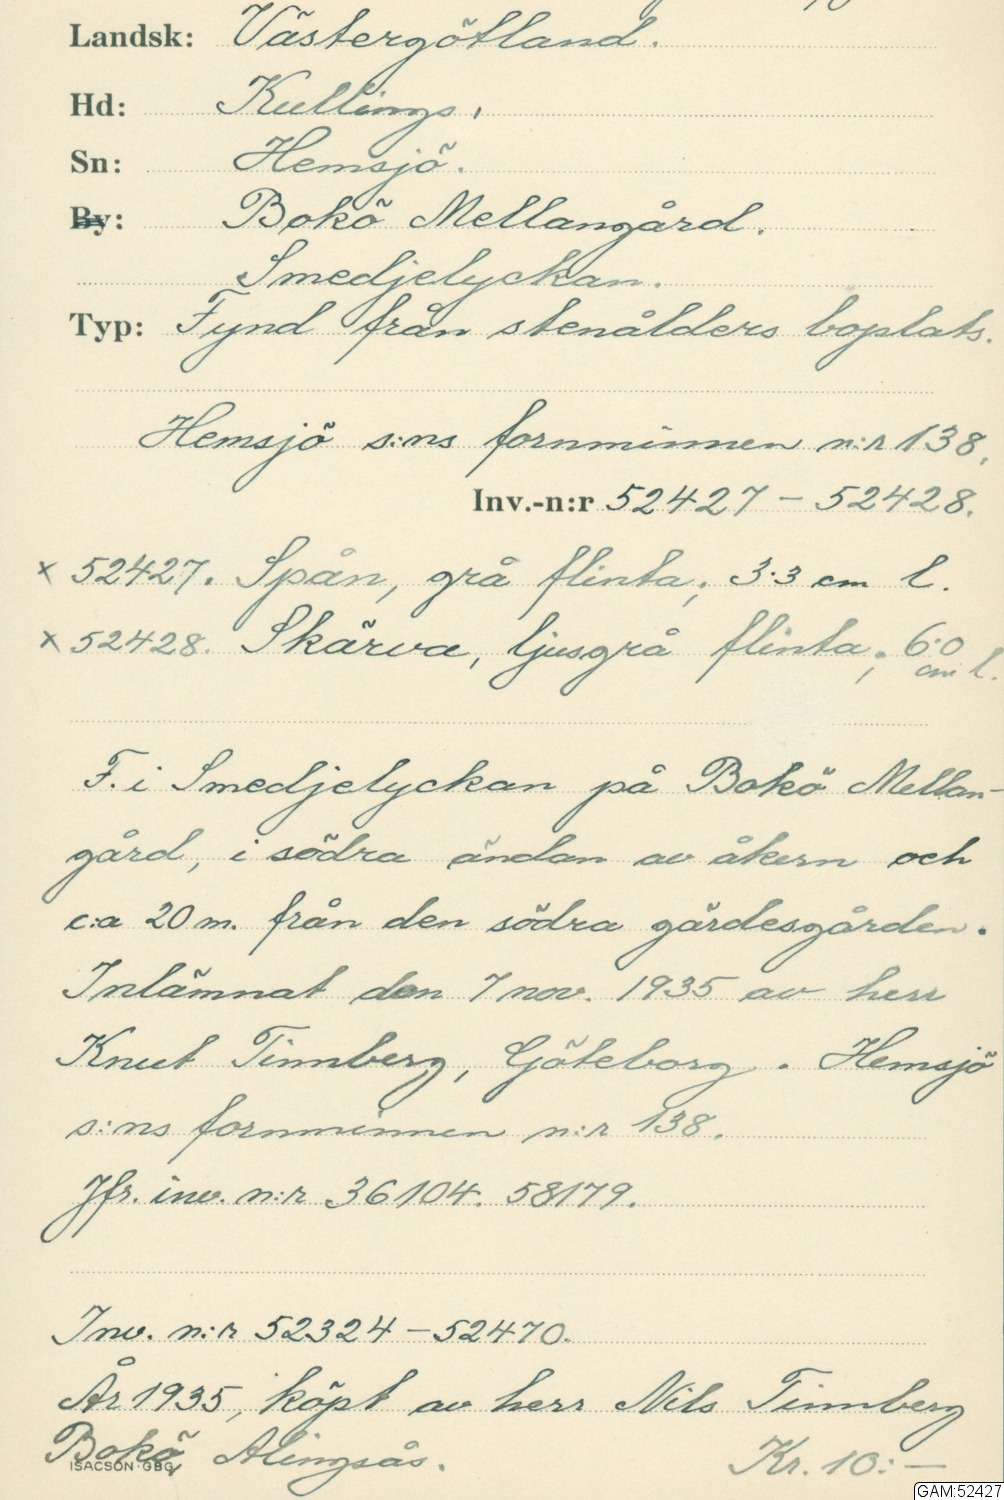 Landsk: Västergötland.
Hd: Kullings.
Sn: Hemsjö.
By: Bokö Mellangård.
Smedjelyckan.
Typ: Fynd från stenålders boplats.
Hemsjö s:ns fornminnen n:r 138.
Inv.-n:r 52427 – 52428.
x 52427. Spån, grå flinta; 3.3 cm l.
x 52428. Skärva, ljusgrå flinta; 6.0
cm l.
F. i Smedjelyckan på Bokö Mellan-
gård, i södra ändan av åkern och
c:a 20 m. från den södra gärdesgården.
Inlämnat den 7 nov. 1935 av herr
Knut Tinnberg, Göteborg. Hemsjö
s:ns fornminnen n:r 138.
Jfr. inv. n:r 36104. 58179.
Inv. n:r 52324 – 52470.
År 1935, köpt av herr Nils Tinnberg
Bokö, Alingsås. Kr. 10: –
ISACSON·GBG
GAM:52427